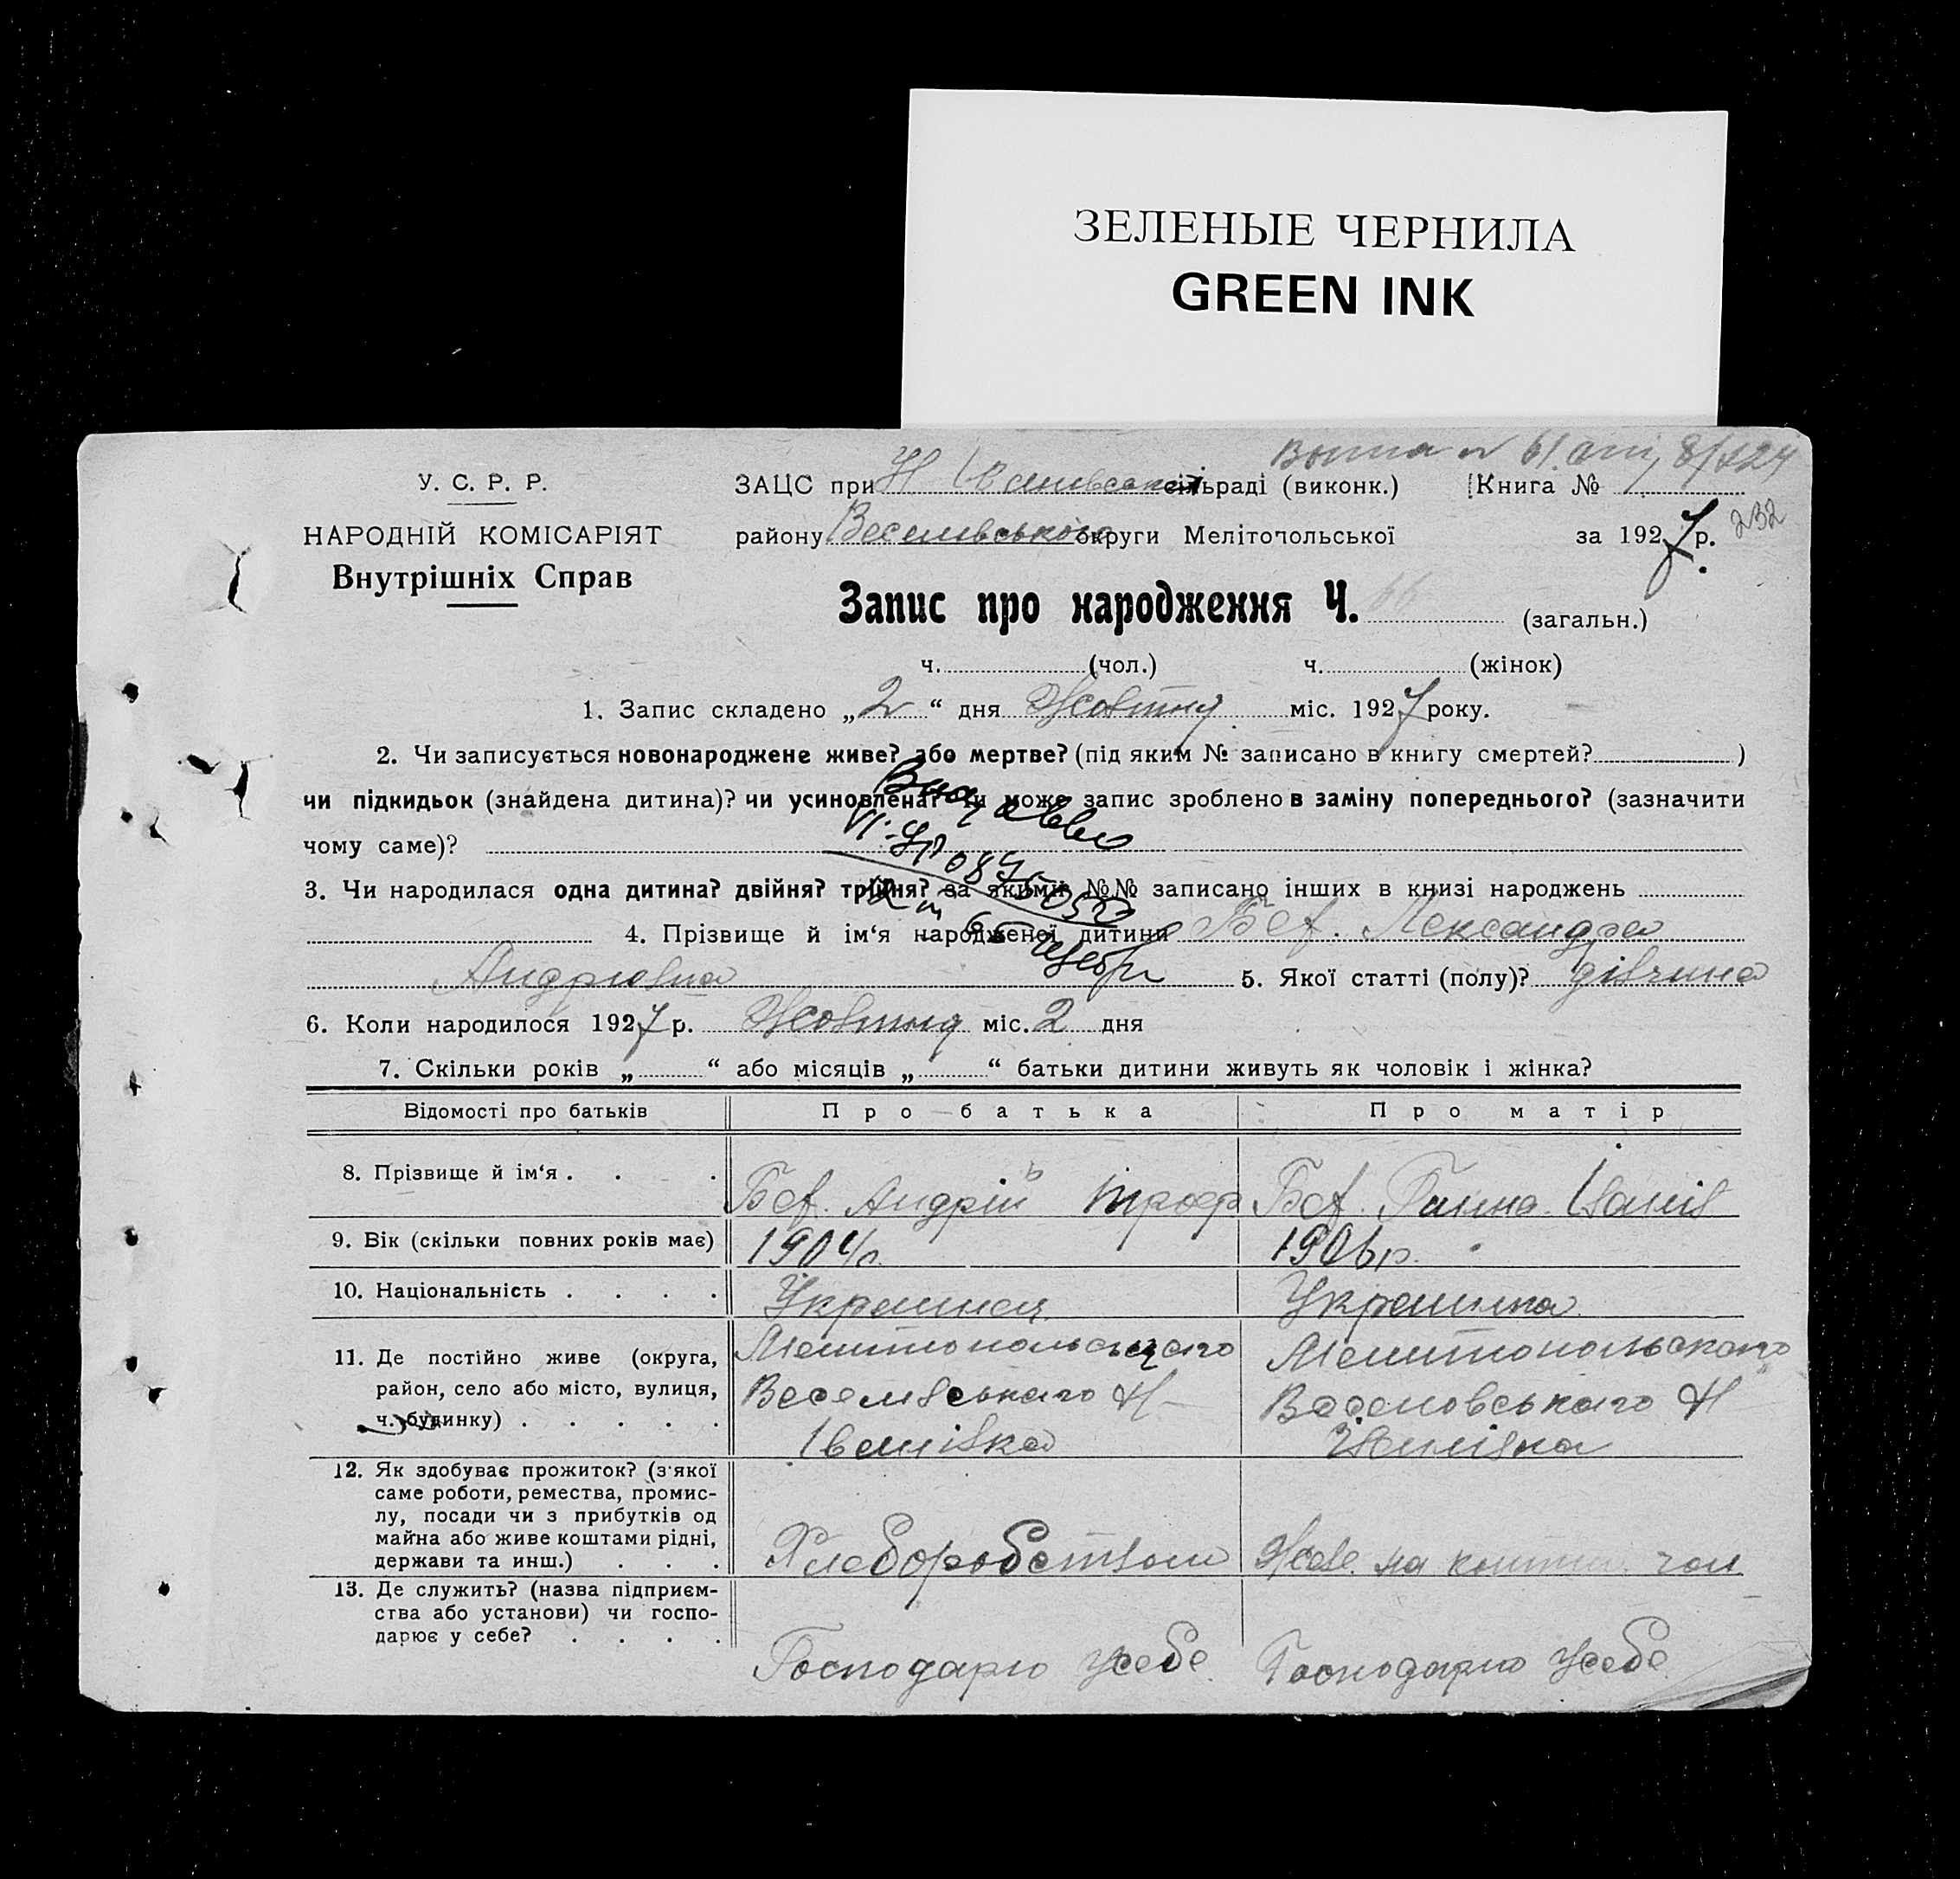 ЗЕЛЕНЫЕ ЧЕРНИЛА
GREEN INK
У. С. Р. Р.
НАРОДНІЙ КОМІСАРІЯТ
Внутрішніх Справ
ЗАЦС при Н Івановській сільраді (виконк.) Книга №
району Веселівського округи Мелітопольської за 1927 р. 232
Запис про народження Ч. 66 (загальн.)
ч. (чол.) ч. (жінок)
1. Запис складено „2“ дня Жовтня міс. 1927 року.
2. Чи записується новонароджене живе? або мертве? (під яким № записано в книгу смертей? )
чи підкидьок (знайдена дитина)? чи усиновлена? чи може запис зроблено в заміну попереднього? (зазначити
чому саме)?
3. Чи народилася одна дитина? двійня? трійня? за якими №№ записано інших в книзі народжень
4. Прізвище й ім'я народженої дитини Леександра
Андрювна 5. Якої статті (полу)? дівчина
6. Коли народилося 1927 р. Жовтня міс. 2 дня
7. Скільки років „ “ або місяців „ “ батьки дитини живуть як чоловік і жінка?
Відомості про батьків Про батька Про матір
8. Прізвище й ім'я . . . Андрій Троф Ганна Іванів
9. Вік (скільки повних років має) 1904р. 1906р.
10. Національність . . . . Українец Українка
11. Де постійно живе (округа, район, село або місто, вулиця, ч. будинку) . . . . .
Мелитопольського Веселівського Н-Іванівка
Мелитопольского Веселовського Н Іванівка
12. Як здобуває прожиток? (з якої
саме роботи, ремества, промис-
лу, посади чи з прибутків од
майна або живе коштами рідні,
держави та инш.) . . .
Хлеборобством Живе на кошти чол
13. Де служить? (назва підприєм-
ства або установи) чи госпо-
дарює у себе? . . . .
Господарю усебе Господарю усебе